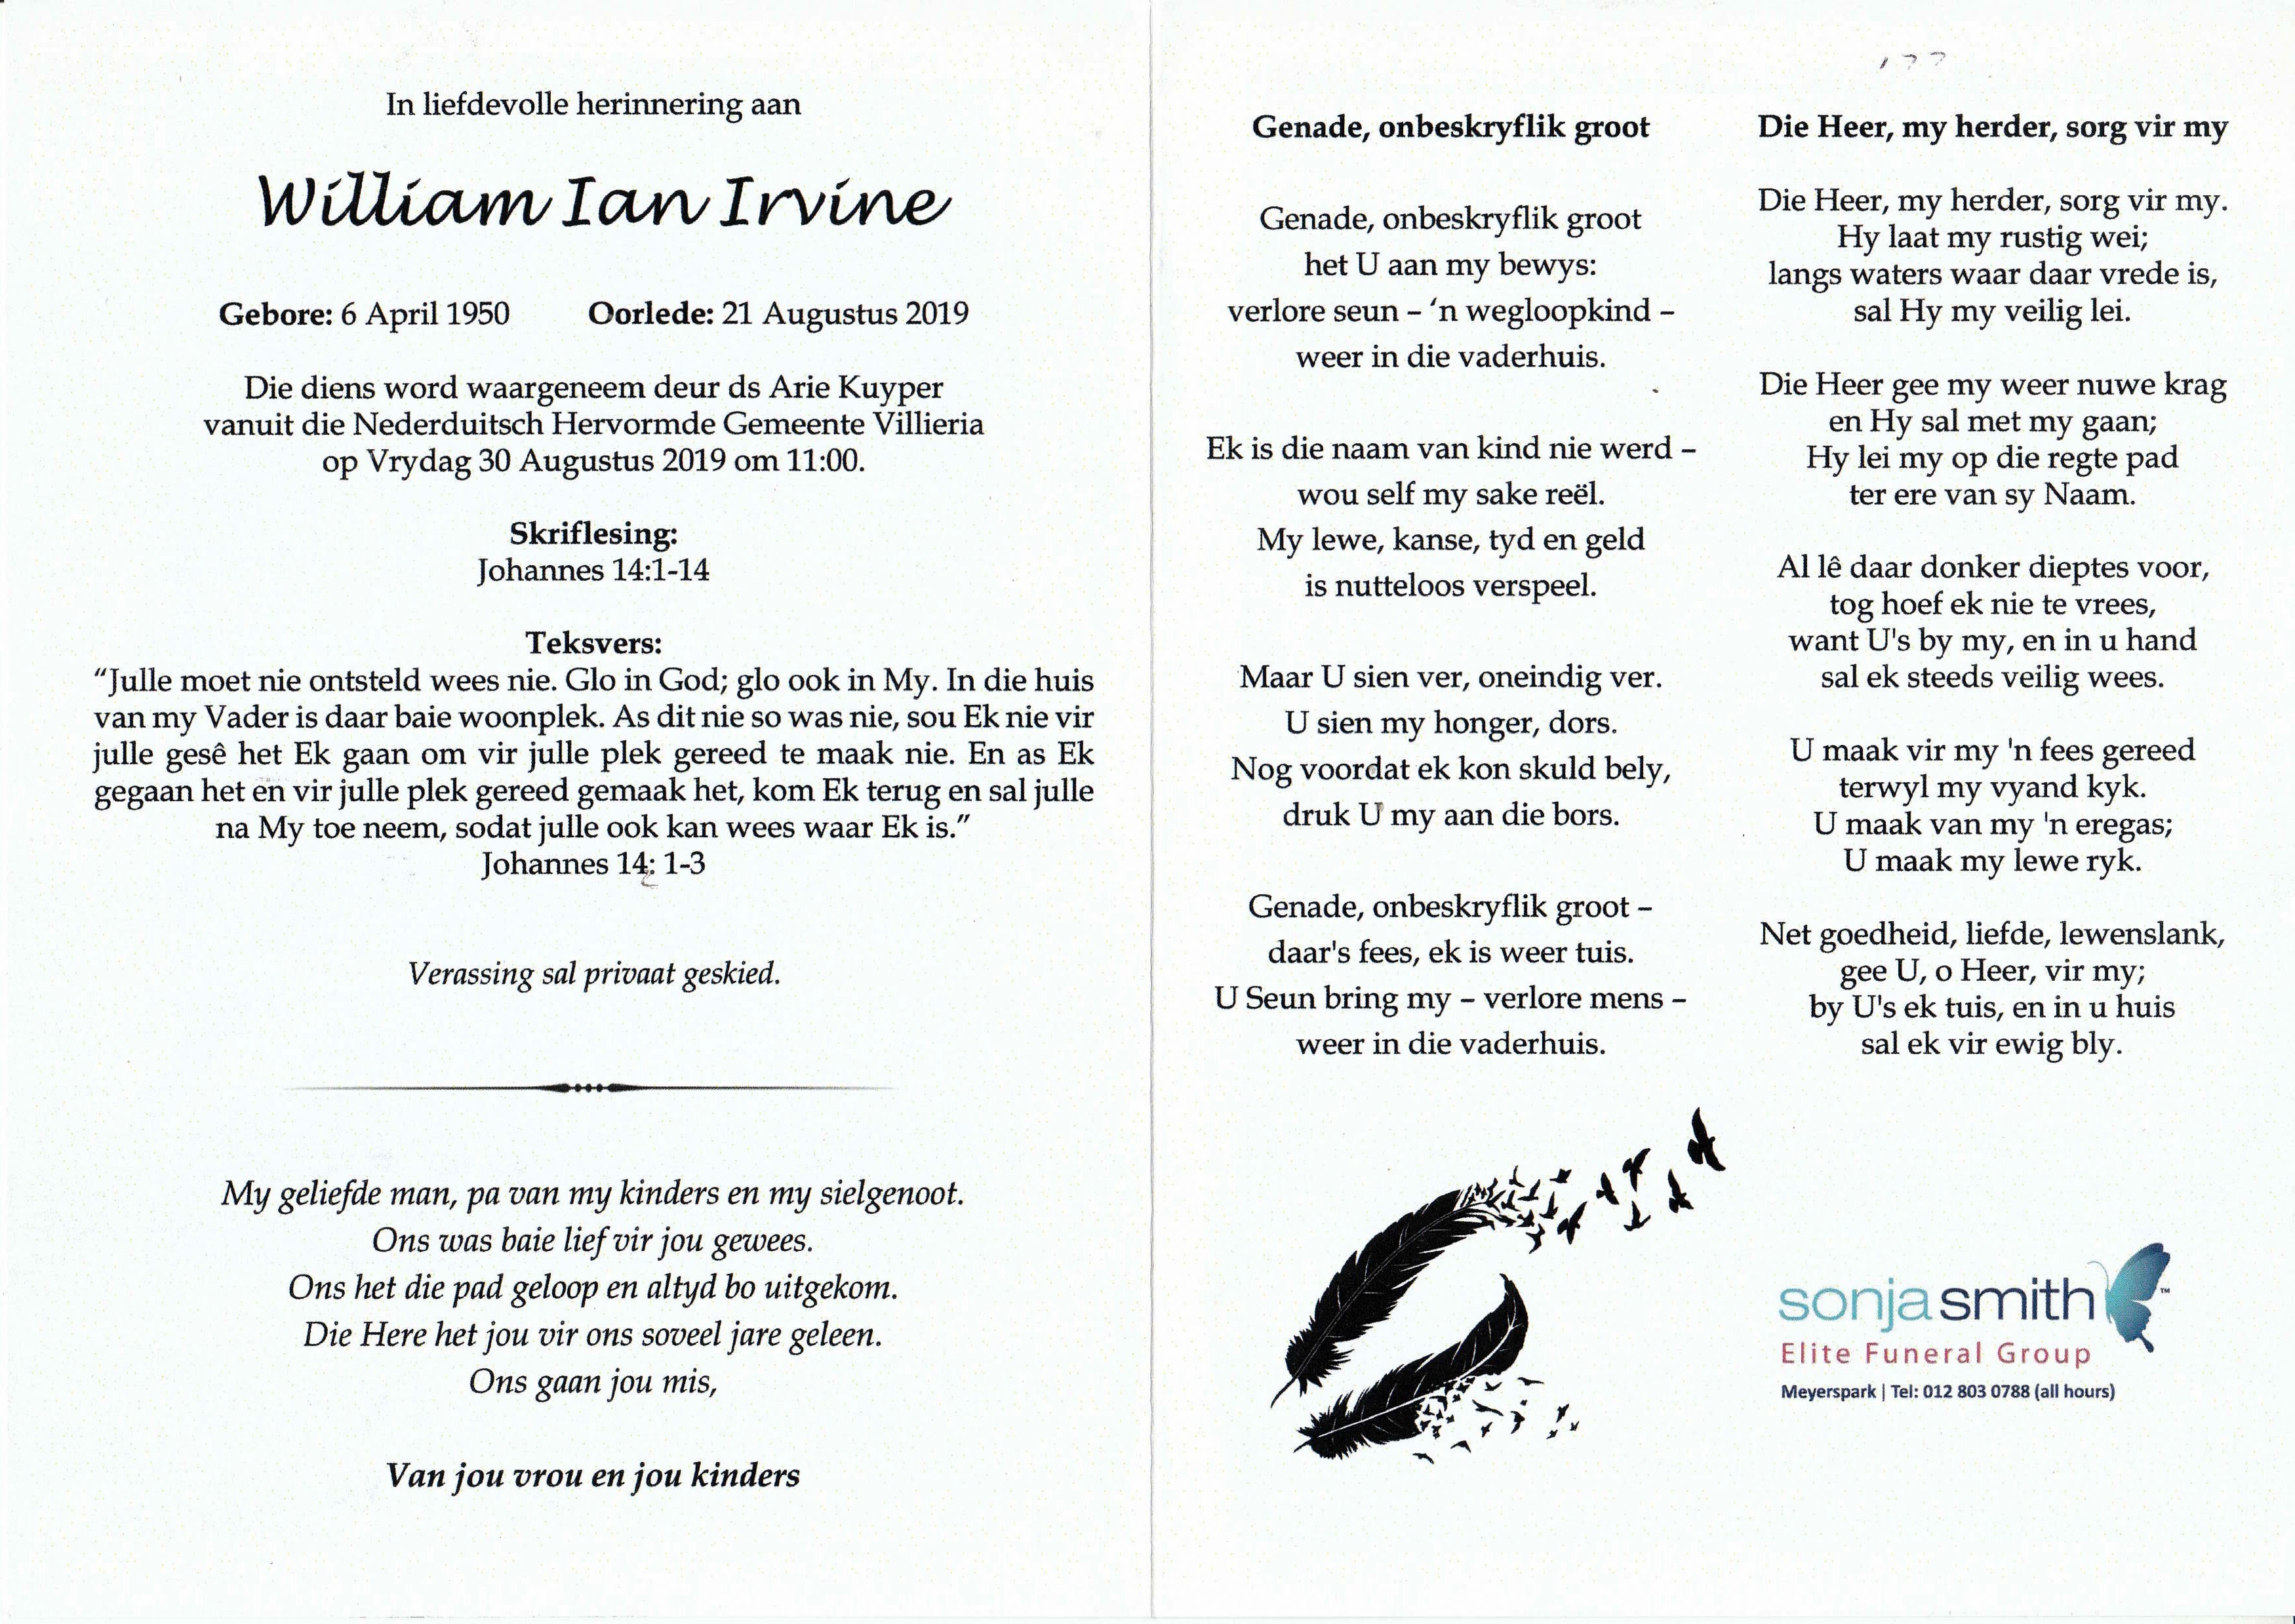 In liefdevolle herinnering aan
William Ian Irvine
Gebore: 6 April 1950 Oorlede: 21 Augustus 2019
Die diens word waargeneem deur ds Arie Kuyper
vanuit die Nederduitsch Hervormde Gemeente Villieria
op Vrydag 30 Augustus 2019 om 11:00.
Skriflesing:
Johannes 14:1-14
Teksvers:
“Julle moet nie ontsteld wees nie. Glo in God; glo ook in My. In die huis
van my Vader is daar baie woonplek. As dit nie so was nie, sou Ek nie vir
julle gesê het Ek gaan om vir julle plek gereed te maak nie. En as Ek
gegaan het en vir julle plek gereed gemaak het, kom Ek terug en sal julle
na My toe neem, sodat julle ook kan wees waar Ek is.”
Johannes 14: 1-3
Verassing sal privaat geskied.
My geliefde man, pa van my kinders en my sielgenoot.
Ons was baie lief vir jou gewees.
Ons het die pad geloop en altyd bo uitgekom.
Die Here het jou vir ons soveel jare geleen.
Ons gaan jou mis,
Van jou vrou en jou kinders
Genade, onbeskryflik groot
Genade, onbeskryflik groot
het U aan my bewys:
verlore seun – ‘n wegloopkind –
weer in die vaderhuis.
Ek is die naam van kind nie werd –
wou self my sake reël.
My lewe, kanse, tyd en geld
is nutteloos verspeel.
Maar U sien ver, oneindig ver.
U sien my honger, dors.
Nog voordat ek kon skuld bely,
druk U my aan die bors.
Genade, onbeskryflik groot –
daar's fees, ek is weer tuis.
U Seun bring my – verlore mens –
weer in die vaderhuis.
Die Heer, my herder, sorg vir my
Die Heer, my herder, sorg vir my.
Hy laat my rustig wei;
langs waters waar daar vrede is,
sal Hy my veilig lei.
Die Heer gee my weer nuwe krag
en Hy sal met my gaan;
Hy lei my op die regte pad
ter ere van sy Naam.
Al lê daar donker dieptes voor,
tog hoef ek nie te vrees,
want U's by my, en in u hand
sal ek steeds veilig wees.
U maak vir my 'n fees gereed
terwyl my vyand kyk.
U maak van my 'n eregas;
U maak my lewe ryk.
Net goedheid, liefde, lewenslank,
gee U, o Heer, vir my;
by U's ek tuis, en in u huis
sal ek vir ewig bly.
sonja smith ™
Elite Funeral Group
Meyerspark | Tel: 012 803 0788 (all hours)